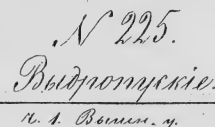 № 225.
Выдропускіе.
ч. 1. Вышн. у.